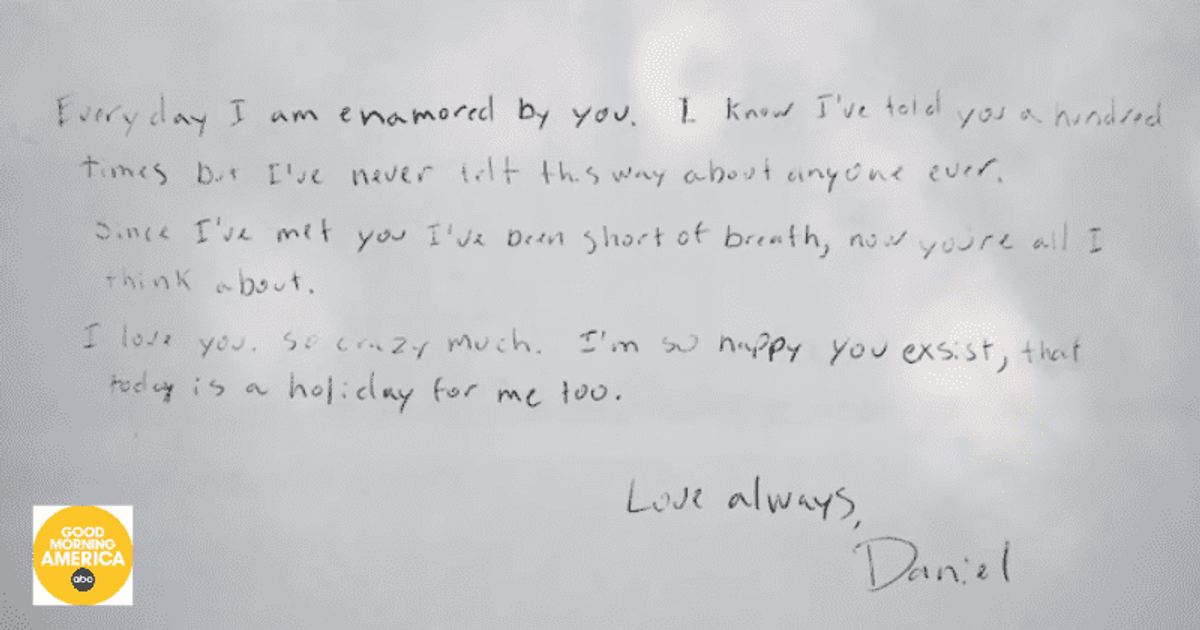 Everyday I am enamored by you. I know I've told you a hundred
times but I've never felt this way about anyone ever.
Since I've met you I've been short of breath, now you're all I
think about.
I love you. So crazy much. I'm so happy you exsist, that
today is a holiday for me too.
Love always,
Daniel
GOOD
MORNING
AMERICA
abc